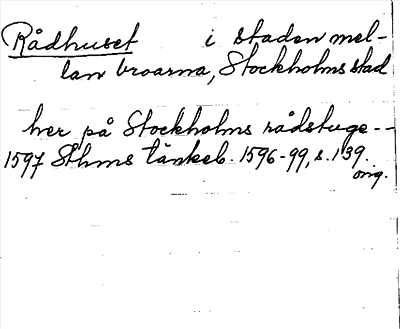 Rådhuset i staden mel-
lan broarna, Stockholms stad
her på Stockholms rådstuge--
1597 Sthms tänkeb. 1596-99, s. 139.
orig.